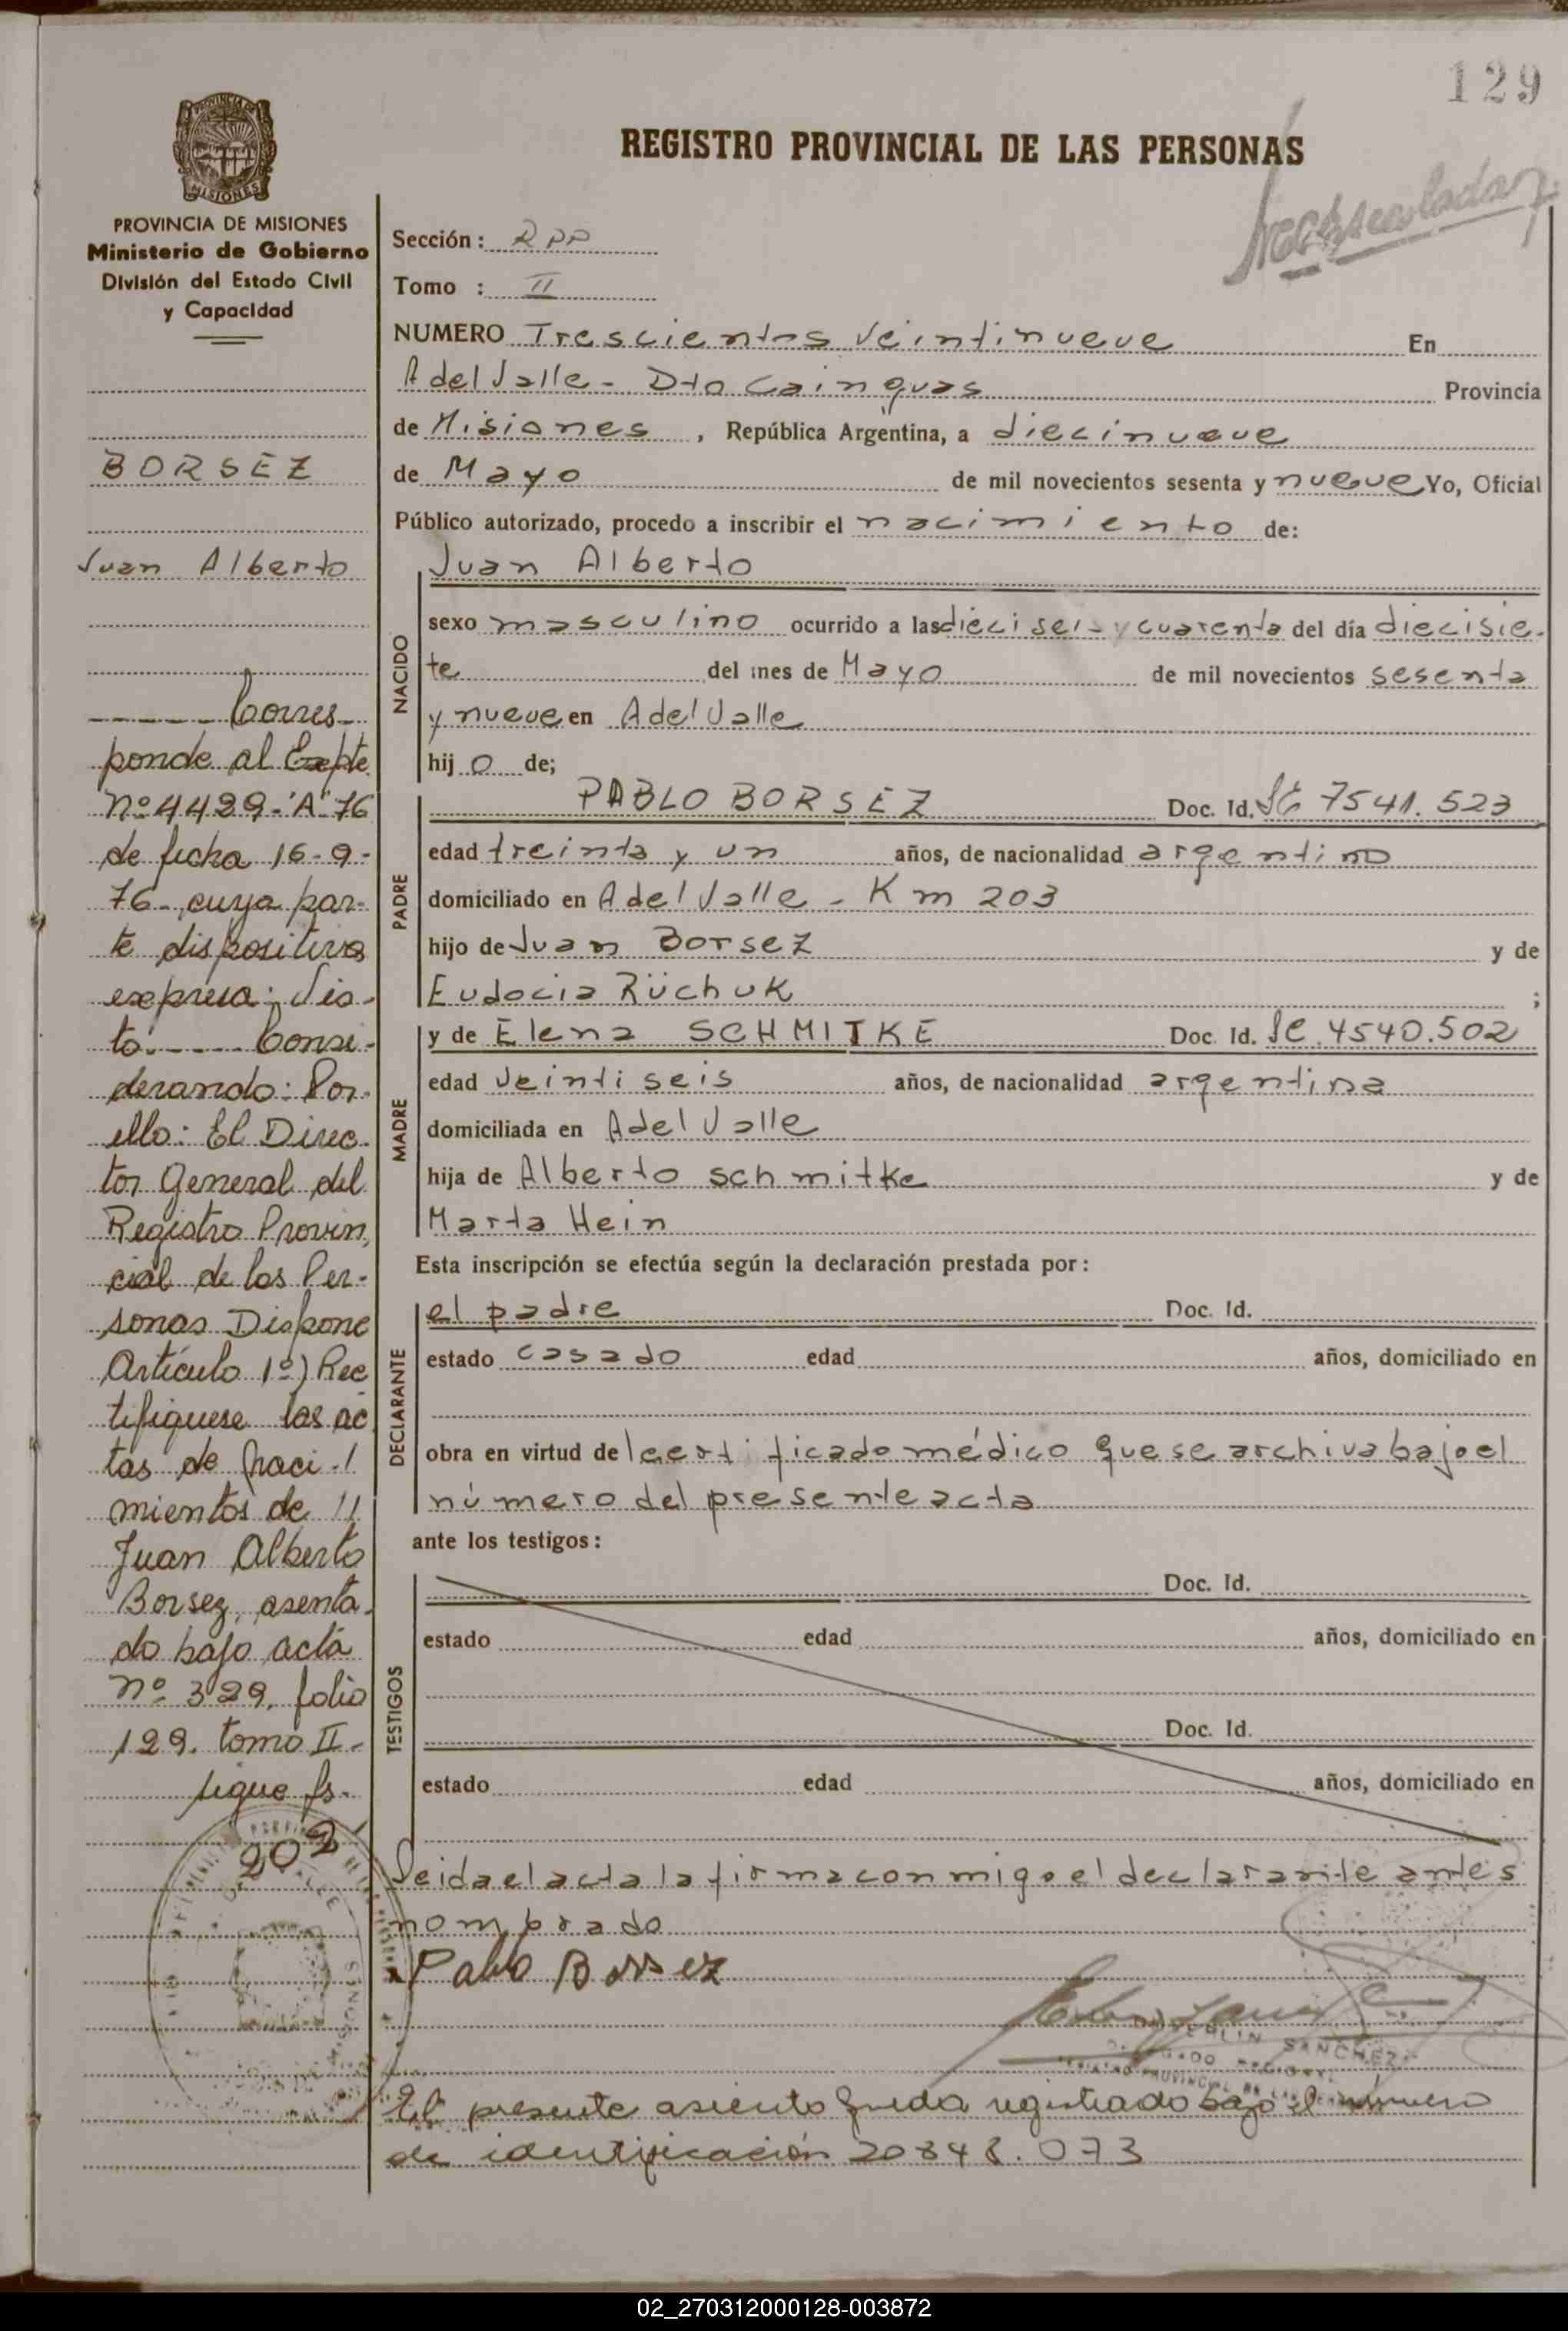 129
REGISTRO PROVINCIAL DE LAS PERSONAS
PROVINCIA DE
MISIONES
PROVINCIA DE MISIONES
Ministerio de Gobierno
División del Estado Civil
y Capacidad
BORSEZ
Juan Alberto
----- Corres-
ponde al Expte
Nº 4429-"A"-76
de fecha 16-9-
76- cuya par-
te dispositiva
expresa: Vis-
to ----- Consi-
derando: Por-
ello: El Direc-
tor General del
Registro Provin,
cial de las Per-
sonas Dispone
Artículo 1º) Rec
tifiquese las ac
tas de naci-/
mientos de //
Juan Alberto
Borsez, asenta-
do bajo acta
Nº 329, folio
129. tomo II-
sigue fs-
202
Sección: RPP
Tomo : II
NUMERO Trescientos Veintinueve En
A del Valle - Dto Cainguas Provincia
de Misiones, República Argentina, a diecinueve
de Mayo de mil novecientos sesenta y nueve Yo, Oficial
Público autorizado, procedo a inscribir el nacimiento de:
NACIDO
Juan Alberto
sexo masculino ocurrido a las dieciseis y cuarenta del día diecisie-
te del mes de Mayo de mil novecientos sesenta
y nueve en A del Valle
hijo de;
PADRE
PABLO BORSEZ Doc. Id. 7541.523
edad treinta y un años, de nacionalidad argentino
domiciliado en A del Valle - Km 203
hijo de Juan Borsez y de
Eudocia Rüchuk ;
MADRE
y de Elena SCHMITKE Doc. Id. 4540.502
edad Veinti seis años, de nacionalidad argentina
domiciliada en A del Valle
hija de Alberto schmitke y de
Marta Hein
Esta inscripción se efectúa según la declaración prestada por:
DECLARANTE
el padre Doc. Id.
estado casado edad años, domiciliado en
obra en virtud del certificado médico que se archiva bajo el
número del presente acta
ante los testigos:
TESTIGOS
Doc. Id.
estado edad años, domiciliado en
Doc. Id.
estado edad años, domiciliado en
Leida el acta la firma conmigo el declarante antes
nombrado
Pablo Borsez
SANCHEZ
El presente asiento queda registrado bajo el número
de identificación 20848.073
02_270312000128-003872